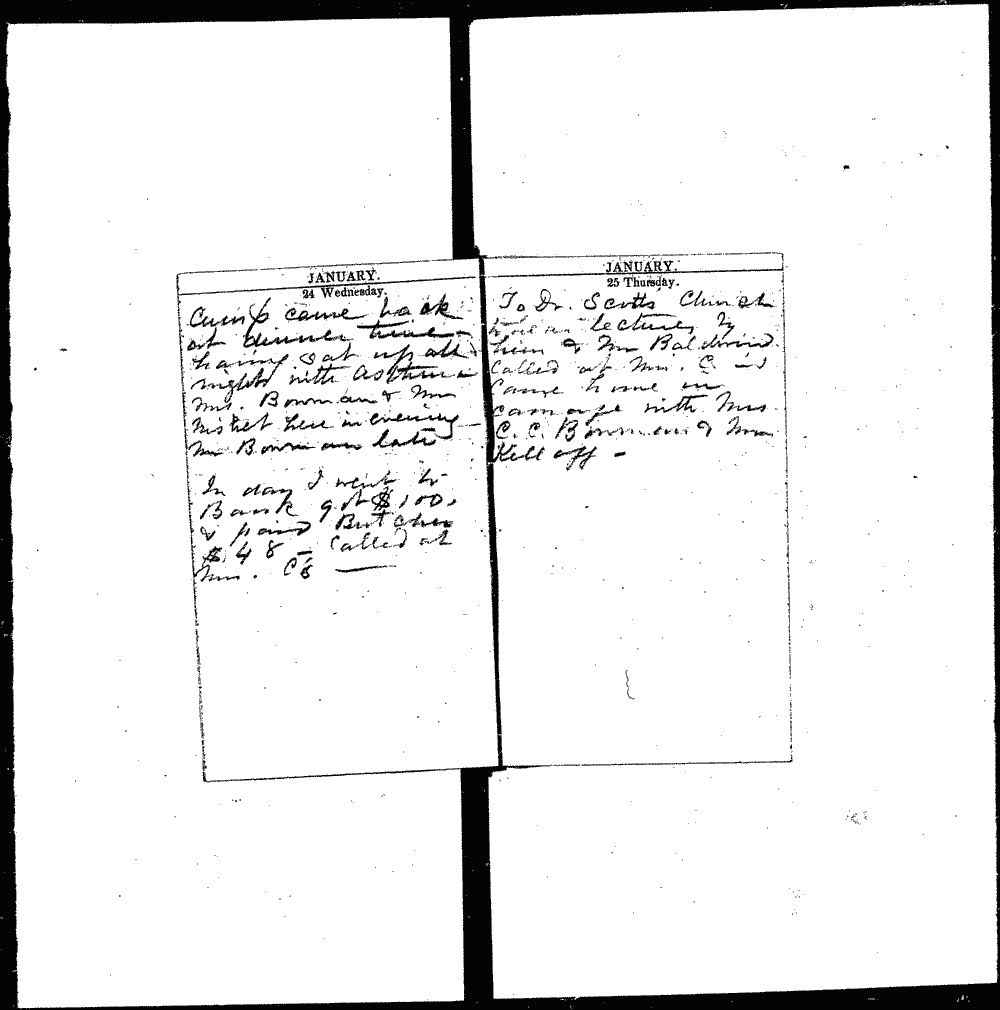 JANUARY.
24 Wednesday.
Cump came back
at dinner time -
having sat up all
night with Asthma
Mrs. Bowman & Mr
here in evening
Mr Bowman late
In day I went to
Bank got $100.
& paid Butcher
$48 - Called at
Mrs. C's
JANUARY.
25 Thursday.
To Dr. Scotts Church
to hear lectures by
him & Mr Baldwin
Called at Mrs. C and
Came home in
carriage with Mrs
C. C. Bowman & Mrs
Kellogg -